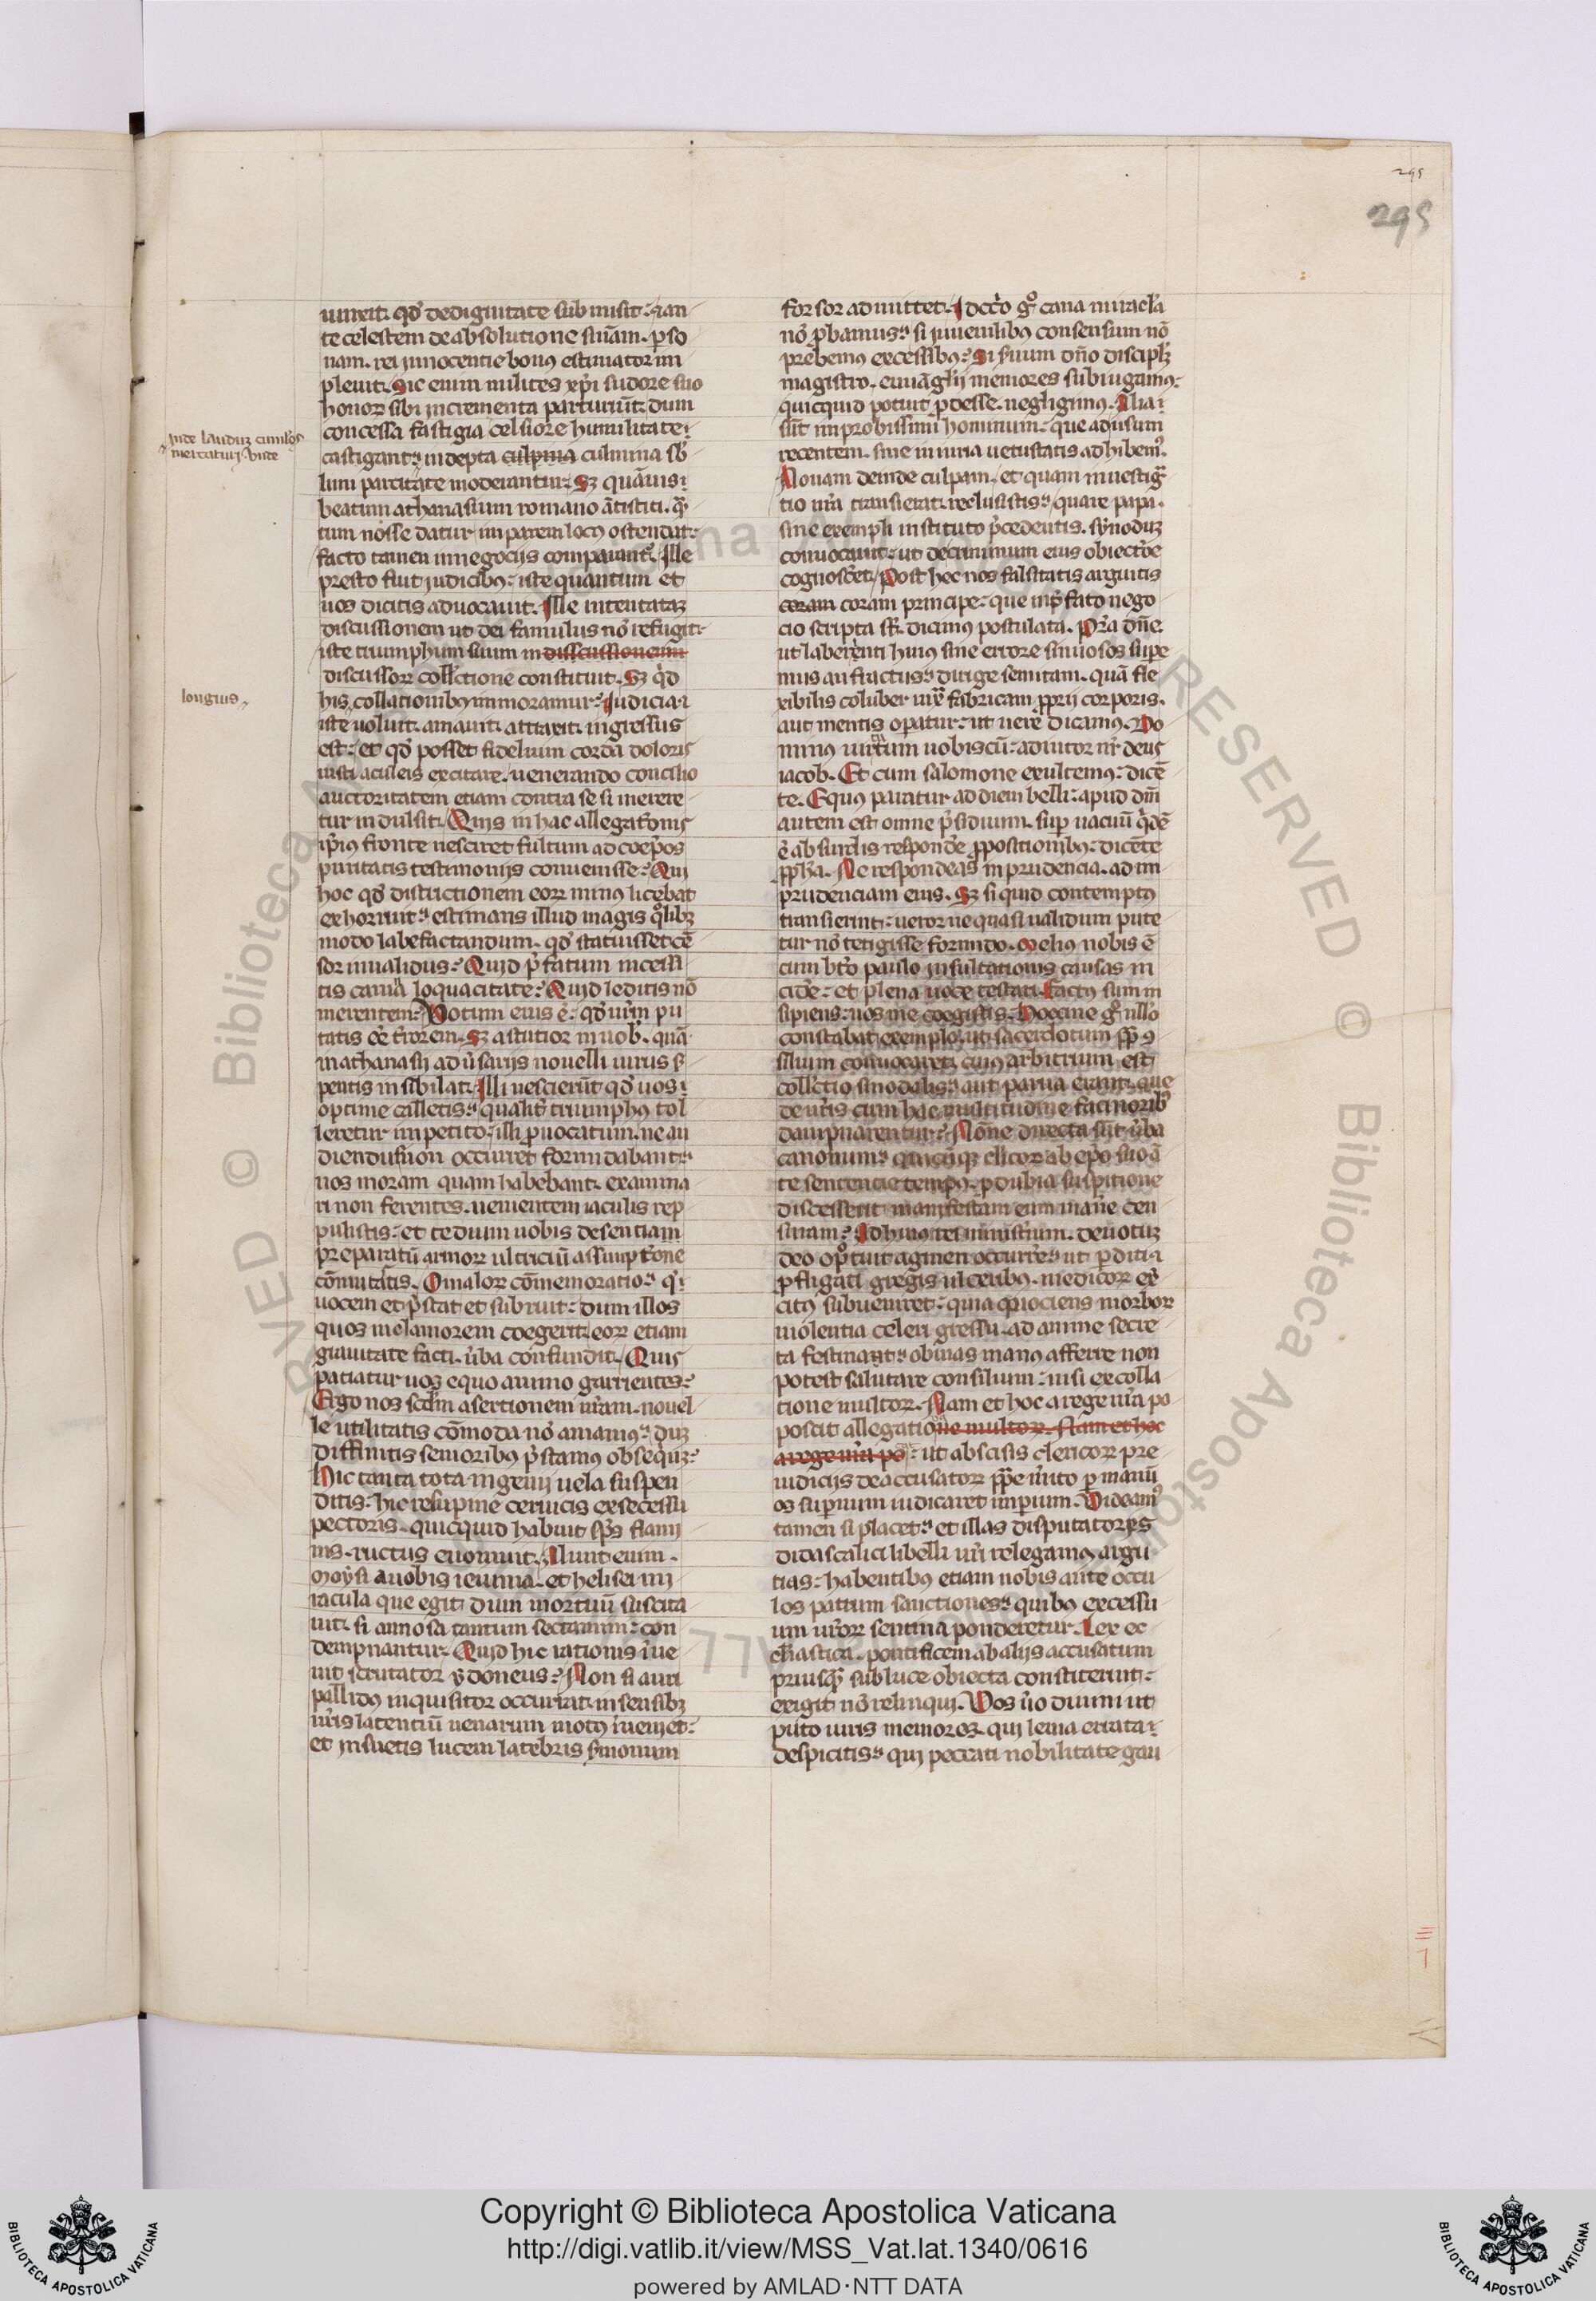 295
295
iunxit. qđ dedignitate submisit: ⁊ an
te celestem de absolutione sinām. p̱so
nam. rei innocentie bonus estimator im
pleuit. Sic enim milites xp̄i sudore suo
honoꝝ sibi incrementa parturiūt. dum
concessa fastigia celsiore humilitate
castigant: indepta culpma culmina sb̄
limi parcitate moderantur. Sꝫ quāuis
beatum athanasium romano ātistiti. qͣ
tum nosse datur imparem locꝰ ostendat:
facto tamen in negocijs comparant᷒. Ille
presto fuit judicibꝰ: iste quantum et
uos dicitis aduocauit. Ille intentataꝫ
discussionem ut dei famulus nō refugit:
iste triumphum suum in disscussioneum
discussoꝝ coll̄ctione constituit. Sꝫ qͥd
his collationibꝰ immoramur? Judicia
iste uoluit. amauit. attraxit. ingressus
est: et qđ posset fidelium corda doloris
iusti aculeis excitare. uenerando concilio
auctoritatem etiam contra se si merere
tur indulsit. Quis in hac allegat̄onis
ip̄ius fronte nesciret fultum ad coep̄os
puritatis testimonijs conuenisse? Qui
hoc qđ districtionem eoꝝ minꝰ licebat
exhorruit: estimans illud magis qͦlibꝫ
modo labefactandum. qđ statuisset cē
sor inualidus? Quid p̄fatum incessi
tis canīa loquacitate? Quid leditis nō
merentem? Votum eius ē: qđ ur̄m pu
tatis eē errorem. Sꝫ astutior in uob̄. quā
in athanasij aduersarijs nouelli uirus s̄
pentis in sibilat. Illi nescierūt qđ uos
optime calletis: qualit̄ triumphꝰ tol
leretur impetito: illi p̱uocatum. ne au
diendus non occurret formidabant:
uos moram quam habebant. examina
ri non ferentes. uenientem iaculis rep
pulistis: et tedium uobis desentiam
preparatū armoꝝ ultriciū assumpt̄one
cōmutātis. O maloꝝ cōmemoratio: q̄
uocem et p̄stat et subruit: dum illos
quos in clamorem coegerit. eoꝝ etiam
grauitate facti. ūba confundit. Quis
patiatur uos equo animo garrientes?
Ergo nos scd̄m asertionem ur̄am. nouel
le utilitatis cōmoda nō amamꝰ: duꝫ
diffinitis senioribꝰ p̄stamꝰ obsequiꝫ?
Hic tanta tota ingenij uela suspen
ditis: hic resupine ceruicis ex secessu
pectoris. quicquid habuit sp̄s flami
nis. ructus euomuit. Aiunt enim.
Moysi auobis ieiunia. et helisei mi
racula que egit dum mortuū suscita
uit. si annosa tantum sectamur: con
dempnantur. Quid hic rationis īue
nit scrutator ydoneus? Non si auri
pallidꝰ inquisitor occurrat. in sensibꝫ
ur̄is latentiū uenarum motꝰ īueniet:
et insuetis lucem latebris s̄monum
inde laudum cumulꝰ
mercatur. Vnde
longius
fossor admittet. Idcc̄o gͦ cana mirac̄la
nō p̱bamus: si iuuenilibꝰ consensum nō
prebemꝰ excessibꝰ? Si s̄uum dn̄o discip̄lꝫ
magistro. euuāglij memores subiugamꝰ:
quicquid potuit p̱desse. negligimꝰ. Alia
sūt improbissimi hominum: que adusum
recentem. sine iniuria uetustatis adhibem᷒.
Nouam deinde culpam. et quam inuestigͣ
tio ur̄a transierat. reclusistis: quare papa
sine exempli instituto p̄cedentis. synoduꝫ
conuocauit: ut decriminum eius obiect̄oe
cognosc̄et. Post hec nos falsitatis arguitis
coram coram principe: que in p̄fato nego
cio scripta sūt. dicimꝰ postulata. Pr̄a dn̄e.
ut laberenti huiꝰ sine errore sinuosos supe
mus anfractus: dirige semitam. quā fle
xibilis coluber uix̄ fabricam p̱prij corporis.
aut mentis opatur: ut uere dicamꝰ. Do
minus uirtutum nobiscū: adiutor nr̄ deus
iacob. Et cum salomone exultemꝰ: dicē
te. Equꝰ paratur ad diem belli: apud dm̄
autem est omne p̄sidium. sup uacuū qͥdē
ē absurdis respond̄e p̱positionibꝰ: dicēte
p̱pha. Ne respondeas inprudencia. ad im
prudenciam eius. Sꝫ si quid contemptꝰ
transierint: uetor ne quasi ualidum pute
tur nō tetigisse formido. Meliꝰ nobis ē
cum bt̄o paulo insultationis causas in
cid̄e: et plena uoce testari. Factꝰ sum in
sipiens: uos me coegistis. Hoccine gͦ nllo
constabat exemplo. ut sacerdotum sp̄s ꝯ
silium conuocaret. cuiꝰ arbitrium est
coll̄ctio sinodalis: aut parua erant. que
de ur̄is cum hac multitudine facinoribꝰ
dampnarentur? Nōne directa sūt ūba
canonum: quicūqꝫ cl̄icoꝝ ab ep̄o suo ā
te sentencie tempꝰ. p̱ dubia suspitione
discesserit manifestam eum maūe cen
suram? Ad huiꝰ rei ministrum. deuotuꝫ
deo opͦtuit agmen occurr̄e: ut p̱ditia
p̱fligati gregis ulceribꝰ. medicoꝝ ex̄
citꝰ subueniret: quia quociens morboꝝ
uiolentia celeri gressu. ad anime secre
ta festinant: obuias manꝰ afferre non
potest salutare consilium: nisi ex colla
tione multoꝝ. Nam et hoc arege ur̄a po
poscit allegatio ne multoꝝ. Nam et hoc
arege ur̄a po: ut abscisis clericoꝝ pre
iudicijs deaccusatoꝝ p̱p̄e īuito p̱ manū
os sup̄num iudicaret impium. Videam᷒
tamen si placet: et illas disputatores
didascalici libelli ur̄i relegamꝰ argu
tias: habentibꝰ etiam nobis ante occu
los patrum sanctiones: quibꝰ excessu
um ur̄oꝝ sentina ponderetur. Lex ec
cl̄iastica. pontificem abalijs accusatum
priusqͣꝫ subluce obiecta constiterint:
exigit nō relinqui. Vos ūo diuini ut
puto iuris memores. qui lenia errata
despicitis: qui peccati nobilitate gau
Copyright © Biblioteca Apostolica Vaticana
http://digi.vatlib.it/view/MSS_Vat.lat.1340/0616
powered by AMLAD·NTT DATA
BIBLIOTECA APOSTOLICA VATICANA
BIBLIOTECA APOSTOLICA VATICANA